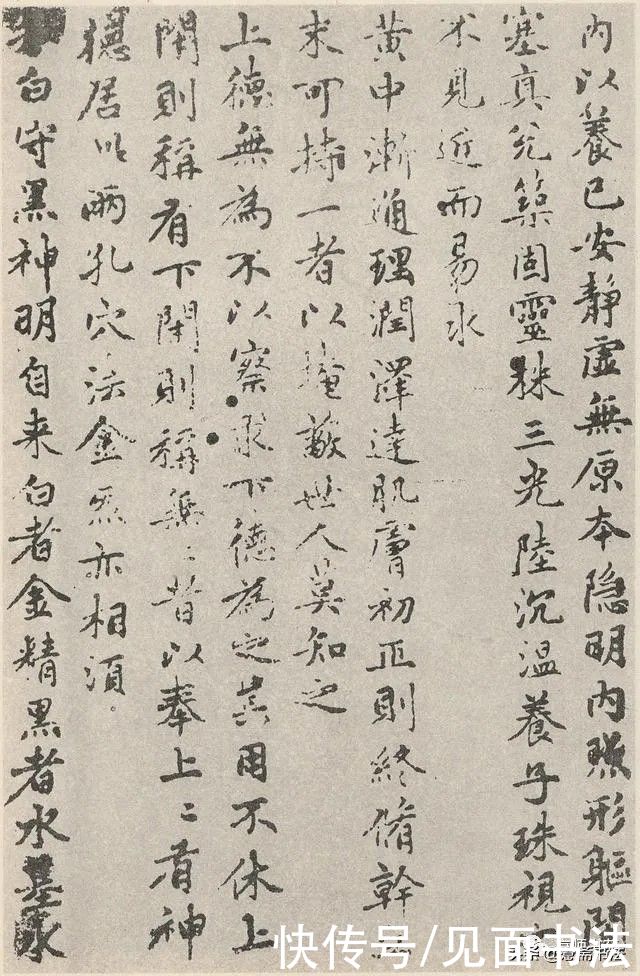 内以養己安静虚無原本隐明内照形軀閇
塞真兊築固靈株三光陸沉温養子珠視之
不見近而易求
黄中漸通理潤澤達肌膚初正則終脩幹立
末可持一者以掩蔽世人莫知之
上德無為不以察求下德為之其用不休上
閇則稱有下閇則稱無〻者以奉上〻有神
德居此兩孔穴法金氣亦相須
知白守黑神明自来白者金精黑者水基水
快传号/见面书法